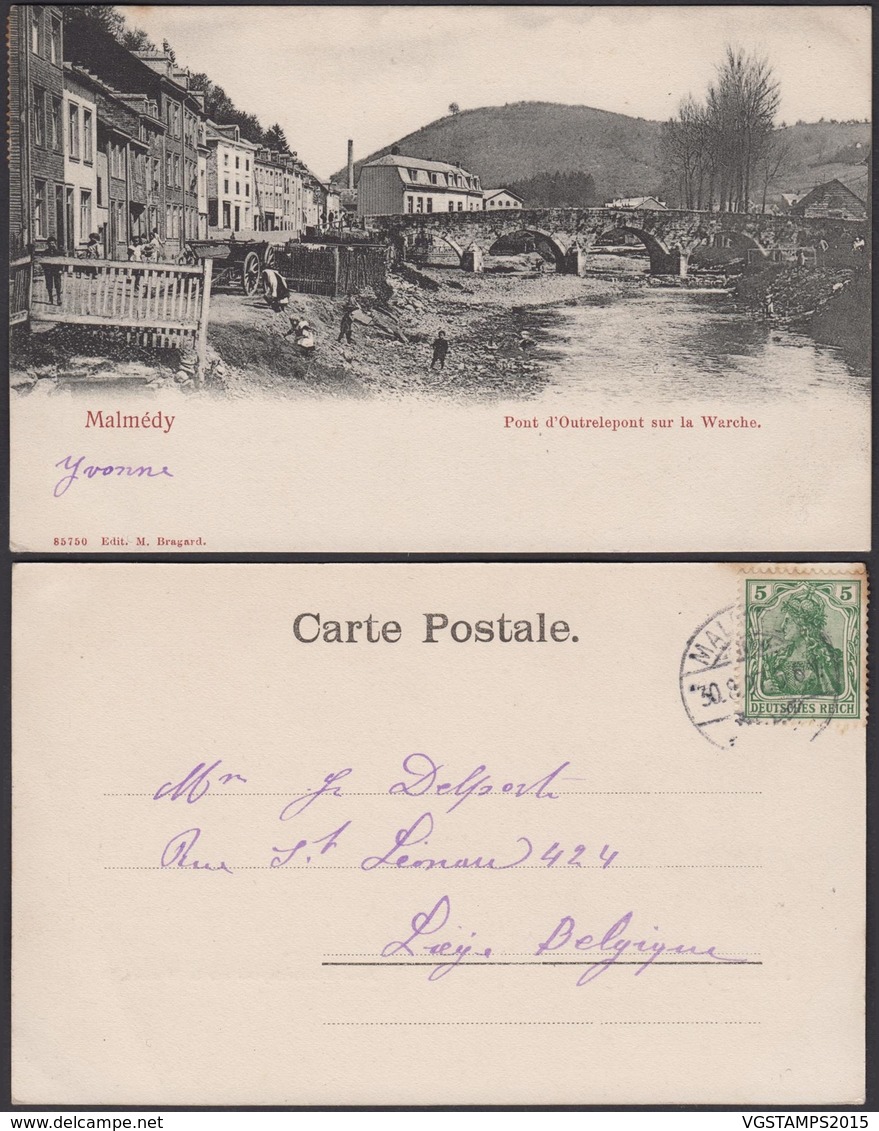 Malmédy
Pont d'Outrelepont sur la Warche.
Yvonne
85750 Edit. M. Bragard.
Carte Postale.
5 5
DEUTSCHES REICH
30.8
Mr Delporte
Rue St Léonard 424
Liège Belgique
VGSTAMPS2015